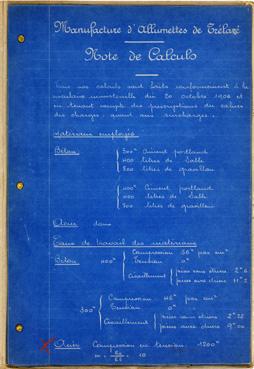 Manufacture d'Allumettes de Trélazé
Note de Calculs
Tous nos calculs sont faits conformément à la
circulaire ministérielle du 20 Octobre 1906 et
en tenant compte des prescriptions du cahier
des charges, quant aux surcharges.
Matériaux employés
Béton 300k Ciment portland
400 litres de Sable
800 litres de gravillon
400k Ciment portland
400 litres de Sable
800 litres de gravillon
Acier doux
Taux de travail des matériaux
Béton 400k Compression 56k par cm²
Tension 0k
Cisaillement sans étriers 2k
avec étriers 11k2
300k Compression par cm²
Tension 0k
Cisaillement sans étriers 2k25
avec étriers 9k00
Acier Compression ou tension 1200k
m = Ea/Eb = 10